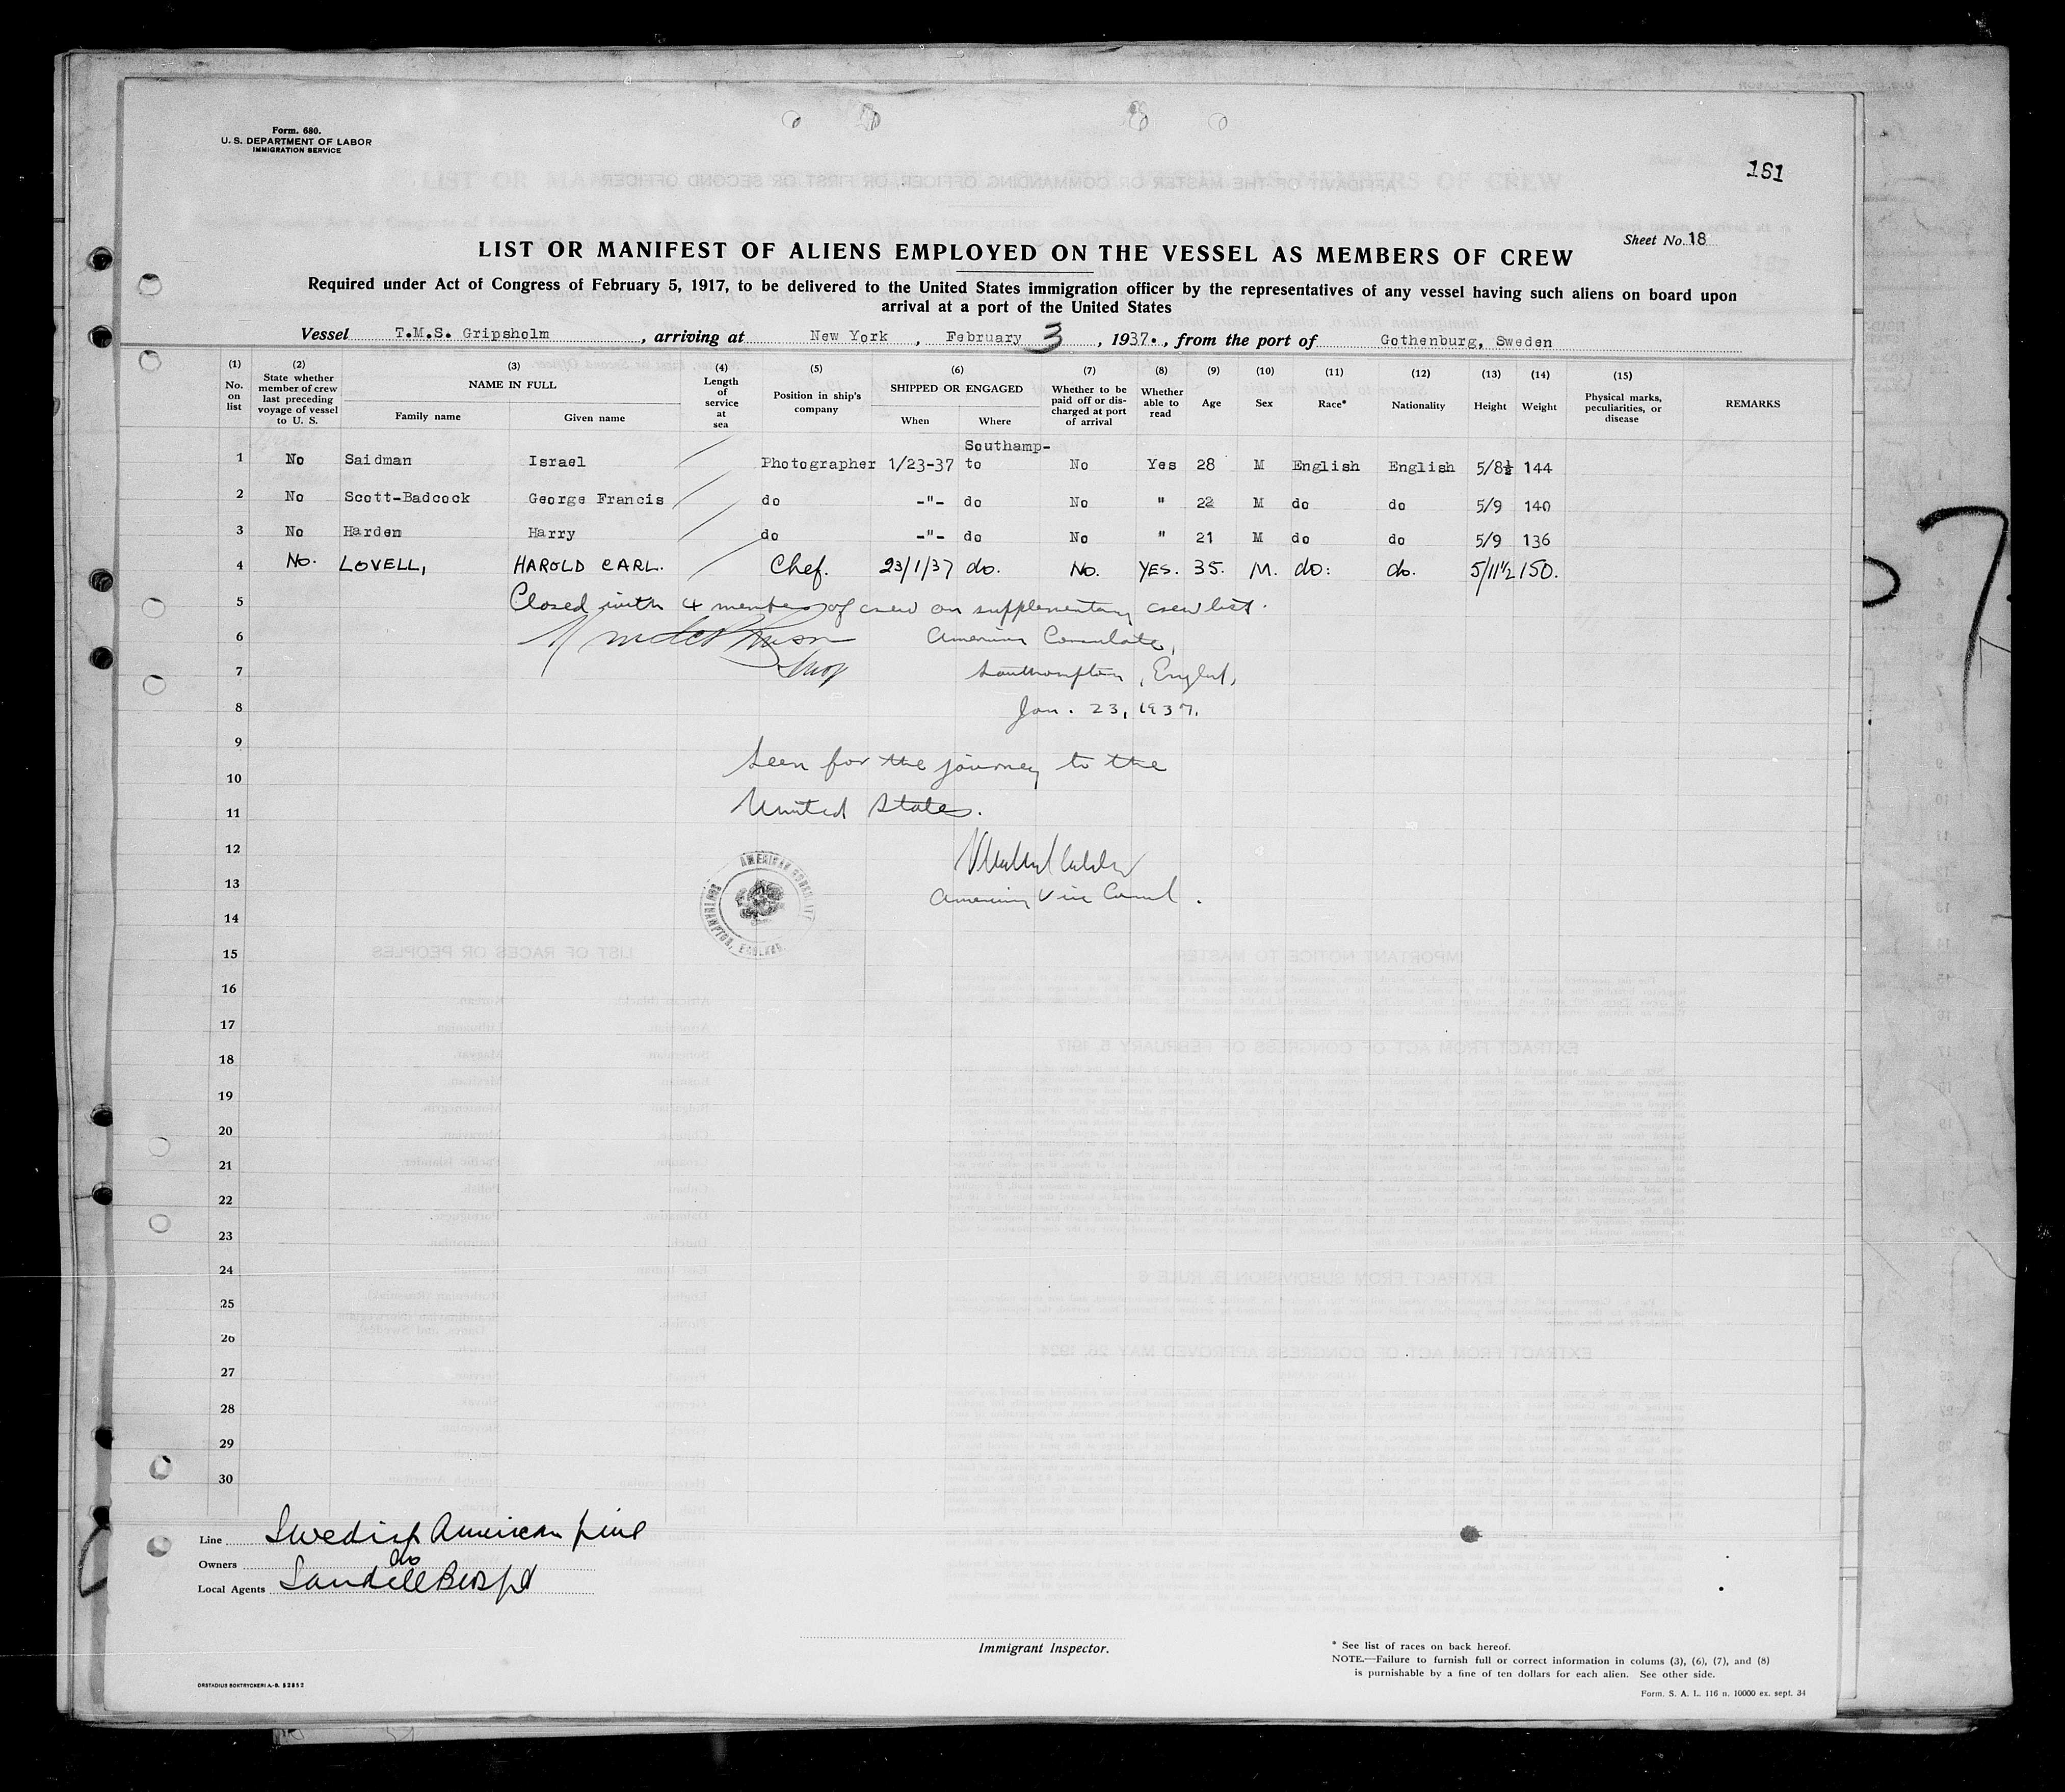 Form. 680.
U. S. DEPARTMENT OF LABOR
IMMIGRATION SERVICE
161
Sheet No. 18
LIST OR MANIFEST OF ALIENS EMPLOYED ON THE VESSEL AS MEMBERS OF CREW
Required under Act of Congress of February 5, 1917, to be delivered to the United States immigration officer by the representatives of any vessel having such aliens on board upon
arrival at a port of the United States
Vessel T.M.S. Gripsholm, arriving at New York, February 3, 1937., from the port of Gothenburg, Sweden
(1) No. on list (2) State whether member of crew last preceding voyage of vessel to U. S. (3) NAME IN FULL Family name Given name (4) Length of service at sea (5) Position in ship's company (6) SHIPPED OR ENGAGED When Where (7) Whether to be paid off or discharged at port of arrival (8) Whether able to read (9) Age (10) Sex (11) Race* (12) Nationality (13) Height (14) Weight (15) Physical marks, peculiarities, or disease REMARKS
1 No Saidman Israel Photographer 1/23-37 Southamp-to No Yes 28 M English English 5/8½ 144
2 No Scott-Badcock George Francis do -"- do No " 22 M do do 5/9 140
3 No Harden Harry do -"- do No " 21 M do do 5/9 136
4 No. LOVELL, HAROLD CARL. Chef. 23/1/37 do. No. YES. 35. M. do: do. 5/11½ 150.
5 Closed with 4 members of crew on supplementary crew list.
6 American Consulate,
7 Southampton, England,
8 Jan. 23, 1937.
9 Seen for the journey to the
10
11 United States.
12
13 American Vice Consul.
AMERICAN CONSULATE
SOUTHAMPTON, ENGLAND.
14
15
16
17
18
19
20
21
22
23
24
25
26
27
28
29
30
Line Swedish American Line
Owners do
Local Agents
Immigrant Inspector.
* See list of races on back hereof.
NOTE.—Failure to furnish full or correct information in colums (3), (6), (7), and (8)
is purnishable by a fine of ten dollars for each alien. See other side.
ORSTADIUS BOKTRYCKERI A.-B. 52852
Form. S. A. L. 116 n. 10000 ex. sept. 34